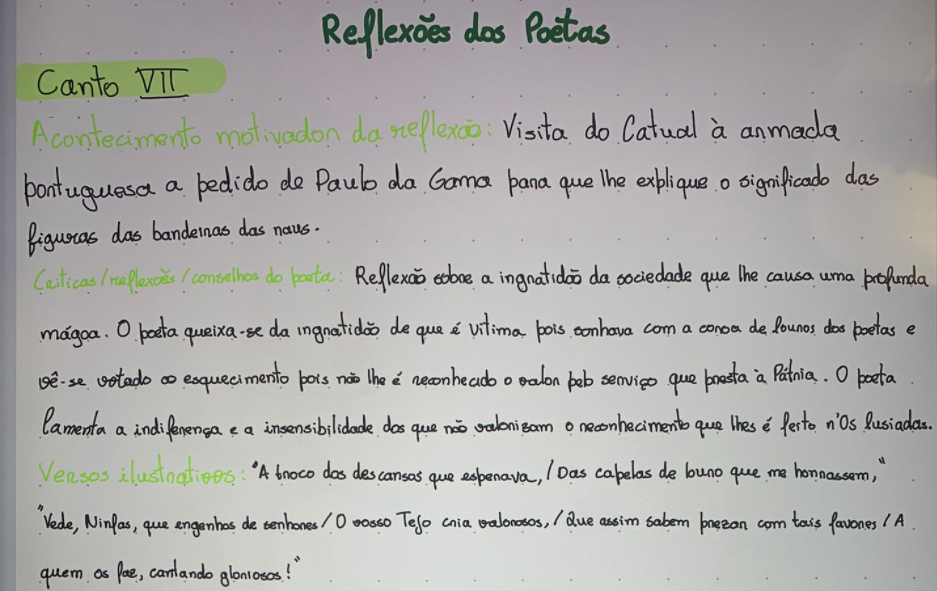 Reflexões dos Poetas
Canto VII
Acontecimento motivador da reflexão: Visita do Catual à armada
portuguesa a pedido de Paulo da Gama para que lhe explique o significado das
figuras das bandeiras das naus.
Críticas/reflexões/conselhos do poeta: Reflexão sobre a ingratidão da sociedade que lhe causa uma profunda
mágoa. O poeta queixa-se da ingratidão de que é vítima pois sonhava com a coroa de louros dos poetas e
vê-se votado ao esquecimento pois não lhe é reconhecido o valor pelo serviço que presta à Pátria. O poeta
lamenta a indiferença e a insensibilidade dos que não valorizam o reconhecimento que lhes é feito n'Os Lusiadas.
Versos ilustrativos: "A troco dos descansos que esperava, / Das capelas de louro que me honrassem,"
"Vede, Ninfas, que engenhos de senhores / O vosso Tejo cria valorosos, / Que assim sabem prezar com tais favores / A
quem os faz, cantando gloriosos!"